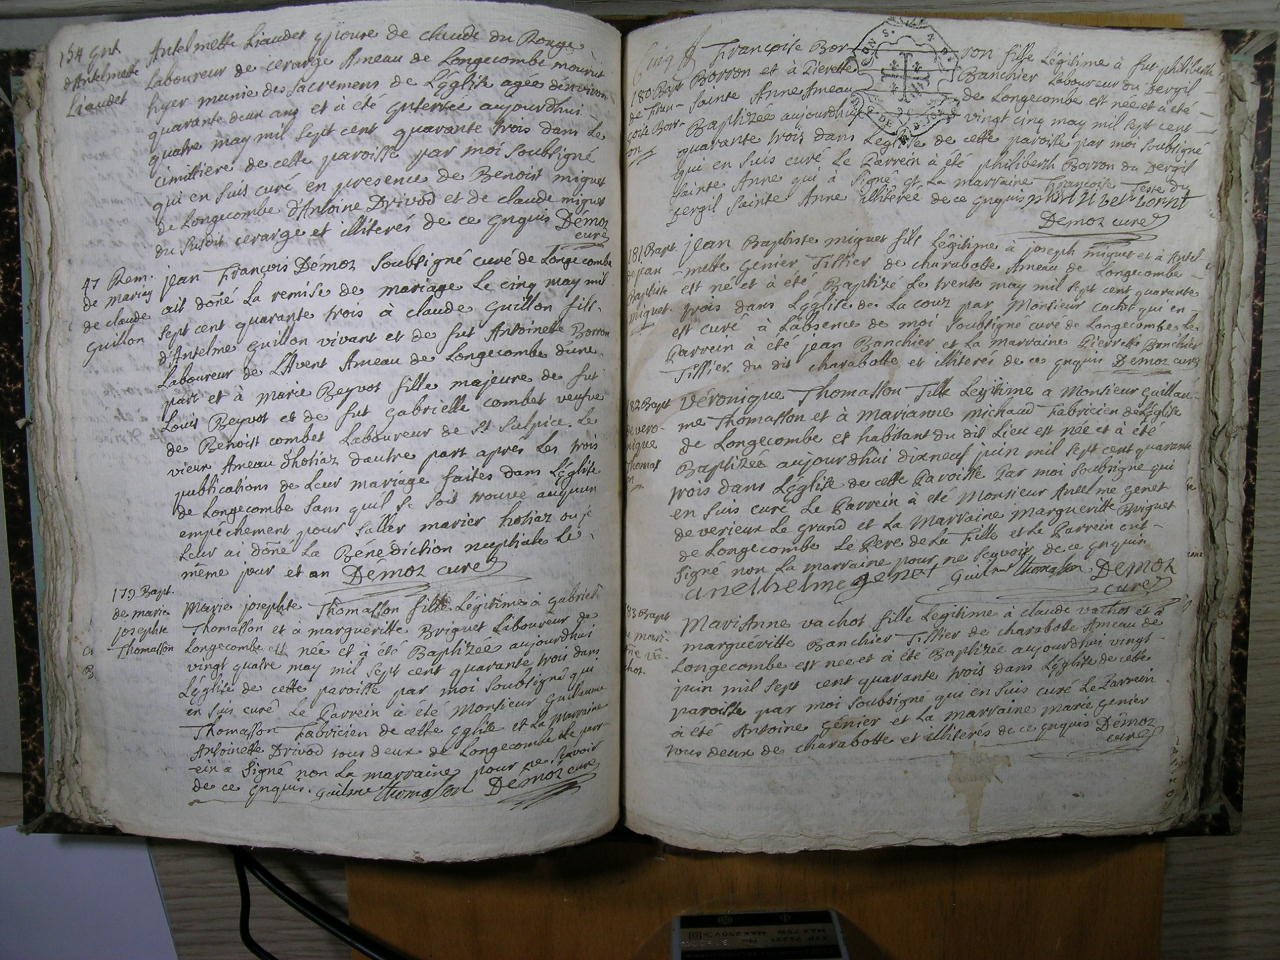 154 Ent
d'Antelmette
Liaudet
Antelmette Liaudet epouse de claude du Rouge
Laboureur de cerarge Ameau de Longecombe mourut
hyer munie des Sacremens de L'église agée d'environ
quarante deux ans et à été enterrée aujourdhui
quatre may mil sept cent quarante trois dans le
cimittiere de cette paroisse par moi soubsigné
qui en suis curé en presence de Benoist miguet
de Longecombe d'Antoine Drivod et de claude miguet
du susdit cerarge et illiterés de ce enquis Démoz
curé
47 Rem.
de mariag
de claude
Guillon
jean François Démoz soubsigné curé de Longecombe
ait doné La remise de mariage Le cinq may mil
sept cent quarante trois à claude Guillon fils
d'Antelme Guillon vivant et de fut Antoinette Borron
Laboureur de L'Avent Ameau de Longecombe d'une
part et à marie Beyvot fille majeure de fut
Louis Beyvot et de fut Gabrielle combet veufve
de Benoist combet Laboureur de St Sulpice Le
vieux Ameau d'hotiaz d'autre part après Les trois
publications de Leur mariage faites dans L'église
de Longecombe sans quil se soit trouvé auqun
empéchement pour s'aller marier hotiaz ou je
Leur ai doné La Bénédiction nuptiale Le
même jour et an Démoz curé
179 Bapt.
de marie
josephte
Thomasson
Marie josephte Thomasson fille Légitime à Gabriel
Thomasson et à margueritte Briguet Laboureur de
Longecombe est née et à été Baptizée aujourdhui
vingt quatre may mil sept cent quarante trois dans
L'église de cette paroisse par moi soubsigné qui
en suis curé Le Parrein à été Monsieur Guillaume
Thomasson fabricien de cette église et La Marraine
Antoinette Drivod tous deux de Longecombe Le parr-
ein a signé non La marraine pour ne sçavoir
de ce enquis. Guilaume thomasson Démoz curé
180 Bapt
de Fran-
coise Borr-
on
Françoise Bor- ron fille Légitime à fut philiberth
Borron et à Pierette Banchier Laboureur du Gergil
Sainte Anne Ameau de Longecombe est née et à été
Baptizée aujourdhui vingt cinq may mil sept cent
quarante trois dans L'église de cette paroisse par moi soubsigné
qui en suis curé Le Parrein à été philiberth Borron du Gergil
sainte Anne qui à signé et La marraine Françoise Teste du
gergil Sainte Anne illiterée de ce enquis philibert boront
Démoz curé
181 Bapt
de jean
Baptiste
miguet
jean Baptiste miguet fils Légitime à joseph miguet et à Antel-
mette Genier Tissier de charabotte Ameau de Longecombe
est né et à été Baptizé Le trente may mil sept cent quarante
trois dans L'église de La coux par Monsieur cachot qui en
est curé à L'absence de moi soubsigné curé de Longecombe Le
Parrein à été jean Banchier et La marraine Pierrette Banchier
Tissier du dit charabotte et illiterés de ce enquis Démoz curé
182 Bapt
de vero-
nique
Thomas
Véronique Thomasson fille Légitime a Monsieur Guillau-
me Thomasson et à Marianne michaud fabricien de L'église
de Longecombe et habitant du dit Lieu est née et à été
Baptizée aujourdhui dixneuf juin mil sept cent quarante
trois dans L'église de cette Paroisse Par moi soubsigné qui
en suis curé Le Parrein à été Monsieur Antelme Genet
de verieux Le grand et La Marraine Margueritte Briguet
de Longecombe Le Pere de La fille et Le Parrein ont
signé non La marraine pour ne sçavoir de ce enquis
antelme genet Guilaume thomasson Démoz
curé
183 Bapt
MariAnne vachot fille Légitime à claude vachot et à
margueritte Banchier Tissier de charabotte Ameau de
Longecombe est née et à été Baptizée aujourdhui vingt
juin mil sept cent quarante trois dans L'église de cette
paroisse par moi soubsigné qui en suis curé Le Parrein
à été Antoine Génier et La marraine marie Genier
tous deux de charabotte et illiterés de ce enquis Démoz
curé